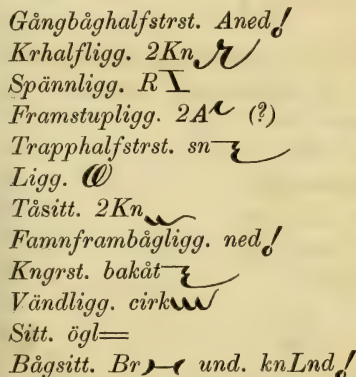 Gångbåghalfstrst. Aned!
Krhalfligg. 2Kn
Spännligg. R
Framstupligg. 2A (?)
Trapphalfstrst. sn
Ligg.
Tåsitt. 2Kn
Famnframbågligg. ned!
Kngrst. bakåt
Vändligg. cirk
Sitt. ögl=
Bågsitt. Br und. knLnd!